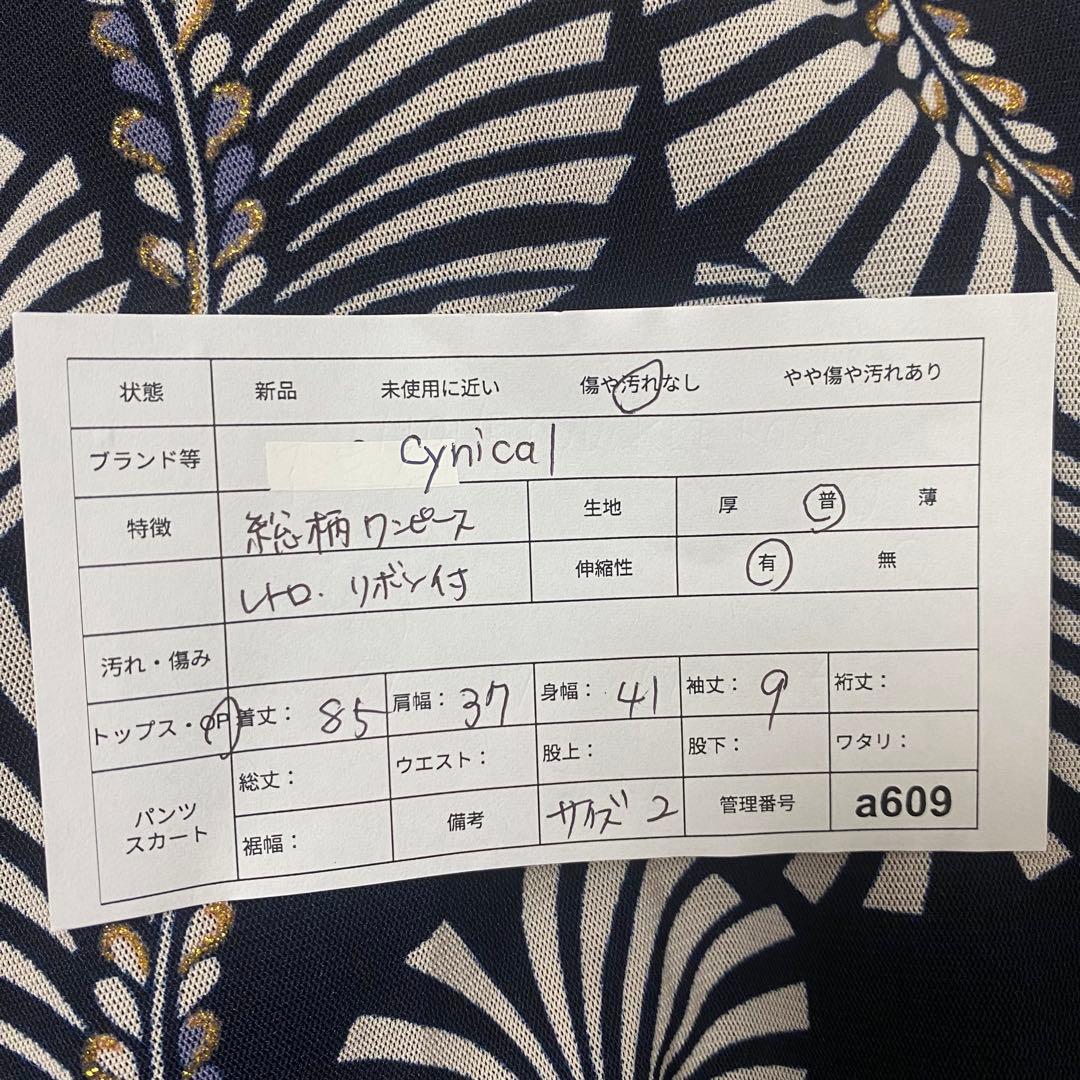 状態 新品 未使用に近い 傷や汚れなし やや傷や汚れあり
ブランド等 Cynical
特徴 総柄ワンピース 生地 厚 普 薄
レトロ. リボン付 伸縮性 有 無
汚れ・傷み
トップス・OP 着丈: 85 肩幅: 37 身幅: 41 袖丈: 9 裄丈:
パンツ
スカート
総丈: ウエスト: 股上: 股下: ワタリ:
裾幅: 備考 サイズ 2 管理番号 a609